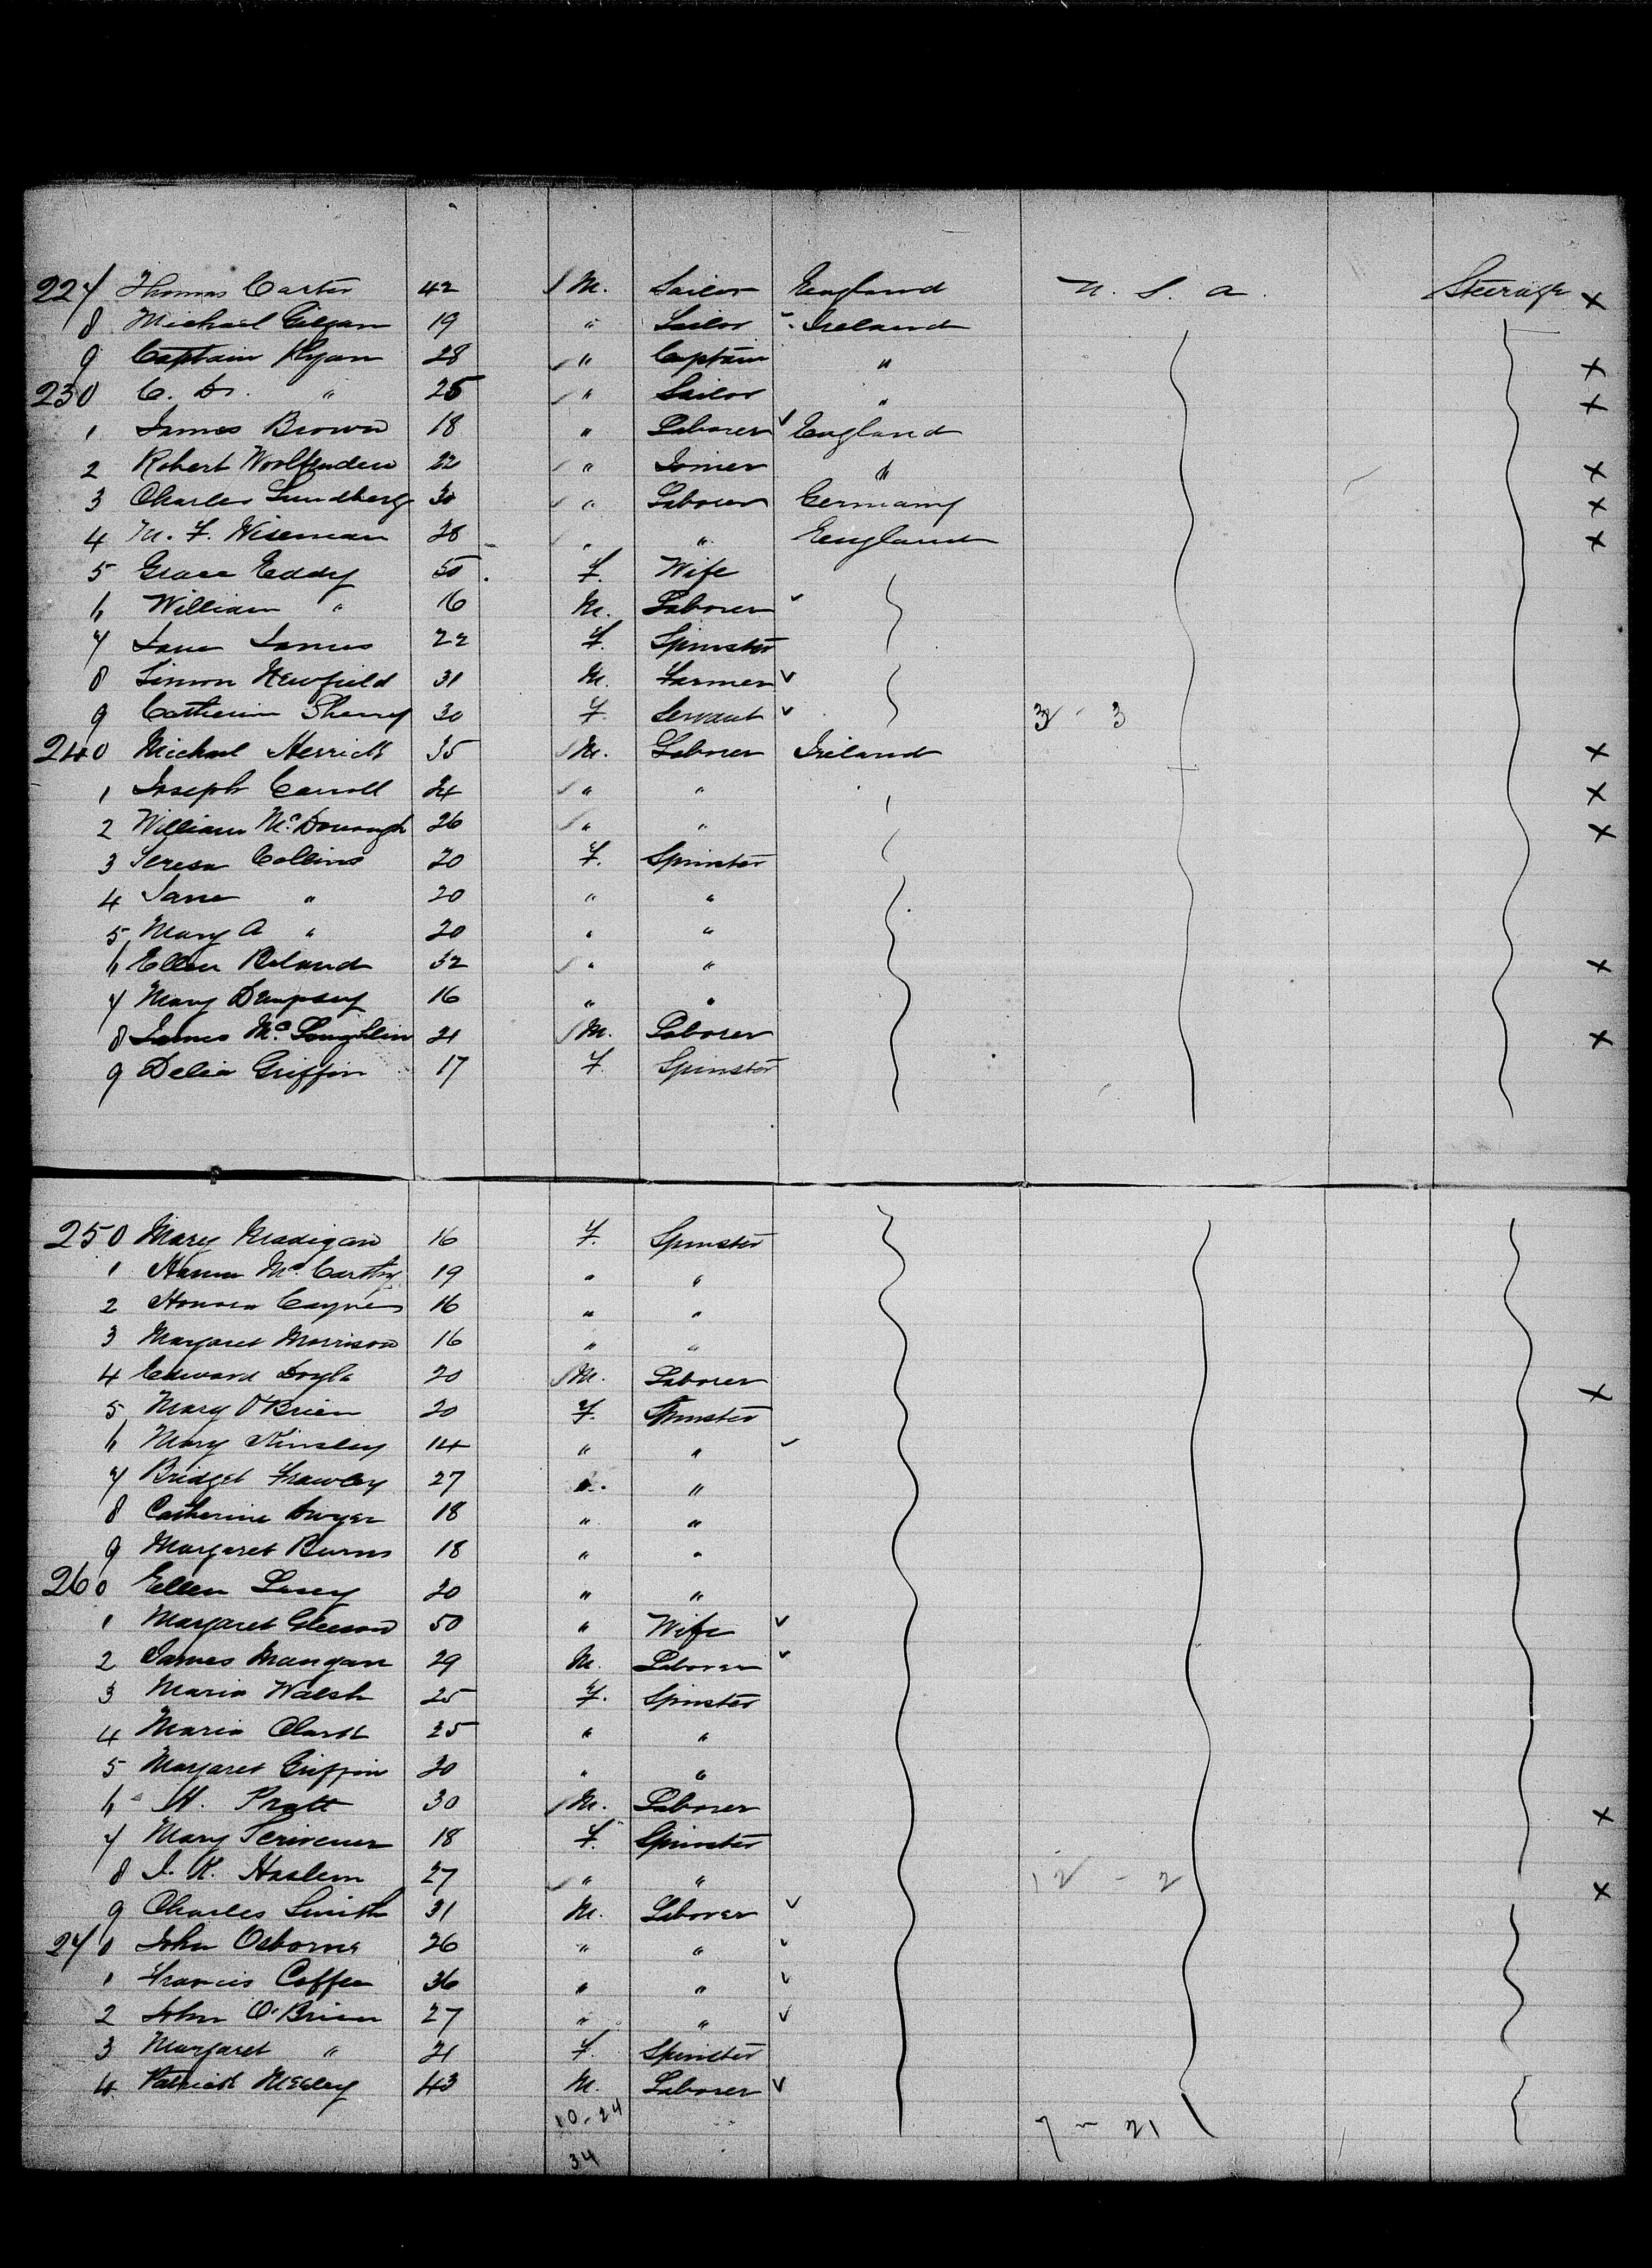 227 Thomas Carter 42 M. Sailor England U. S. A. Steerage X
8 Michael Gilgan 19 " Sailor Ireland
9 Captain Ryan 28 " Captain " X
230 C. Dr. " 25 " Sailor " X
1 James Brown 18 " Laborer England
2 Robert Woolfenden 22 " Joiner " X
3 Charles Lundberg 30 " Laborer Germany X
4 M. F. Wiseman 28 " " England X
5 Grace Eddy 50 F. Wife
6 William " 16 M. Laborer
7 Jane James 22 F. Spinster
8 Simon Newfield 31 M. Farmer
9 Catherine Sherry 30 F. Servant 3 - 3
240 Michael Herrick 35 M. Laborer Ireland X
1 Joseph Carroll 24 " " X
2 William McDonough 26 " " X
3 Teresa Collins 20 F. Spinster
4 Jane " 20 " "
5 Mary A " 20 " "
6 Ellen Boland 32 " " X
7 Mary Dempsey 16 " "
8 James McLoughlin 21 M. Laborer X
9 Delia Griffin 17 F. Spinster
250 Mary Madigan 16 F. Spinster
1 McCarthy 19 " "
2 Honora 16 " "
3 Margaret Morrison 16 " "
4 Edward Doyle 20 M. Laborer X
5 Mary O'Brien 20 F. Spinster
6 Mary Kinsley 14 " "
7 Bridget Frawley 27 " "
8 Catherine Dwyer 18 " "
9 Margaret Burns 18 " "
260 Ellen Lacey 20 " "
1 Margaret Gleeson 50 " Wife
2 James Mangan 29 M. Laborer
3 Maria Walsh 25 F. Spinster
4 Maria Clark 25 " "
5 Margaret Griffin 20 " "
6 H. Pratt 30 M. Laborer X
7 Mary Scrivener 18 F. Spinster
8 J. K. Haslem 27 " " 12 - 2 X
9 Charles Smith 31 M. Laborer
270 John Osborne 26 " "
1 Francis Coffee 36 " "
2 John O'Brien 27 " "
3 Margaret " 21 F. Spinster
4 Patrick 43 M. Laborer
10-24 7 - 21
34